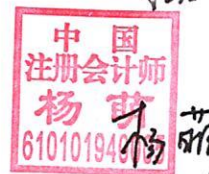 中国
注册会计师
杨萌
61010194
杨